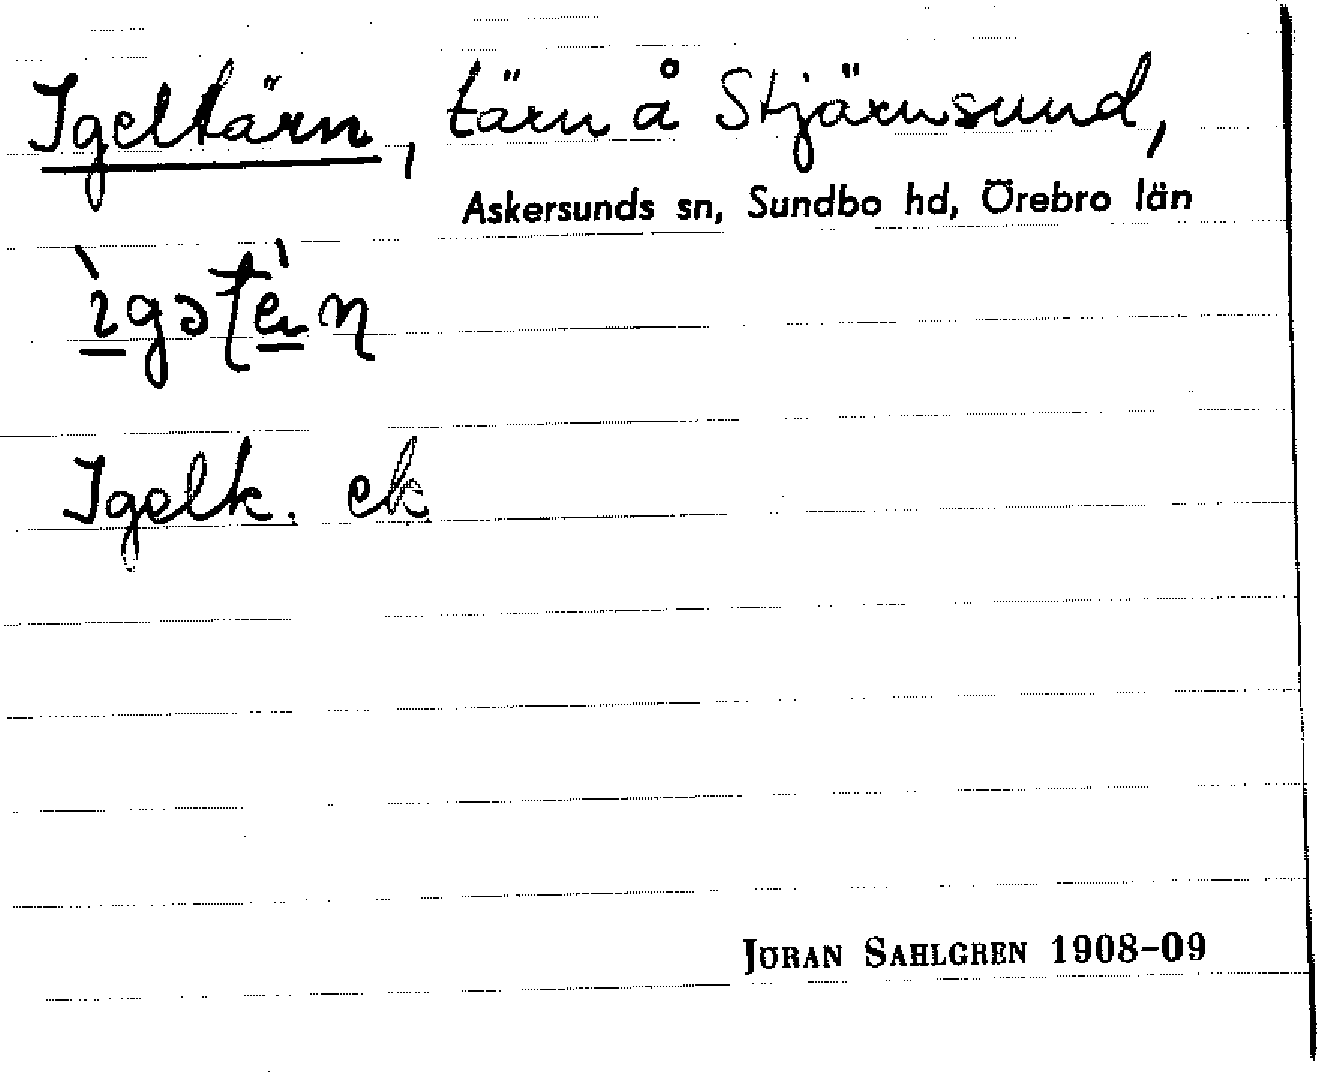 Igeltärn, tärn å Stjärnsund,
Askersunds sn, Sundbo hd, Örebro län
ìgətèṇ
Igelk. ek.
JÖRAN SAHLGREN 1908-09